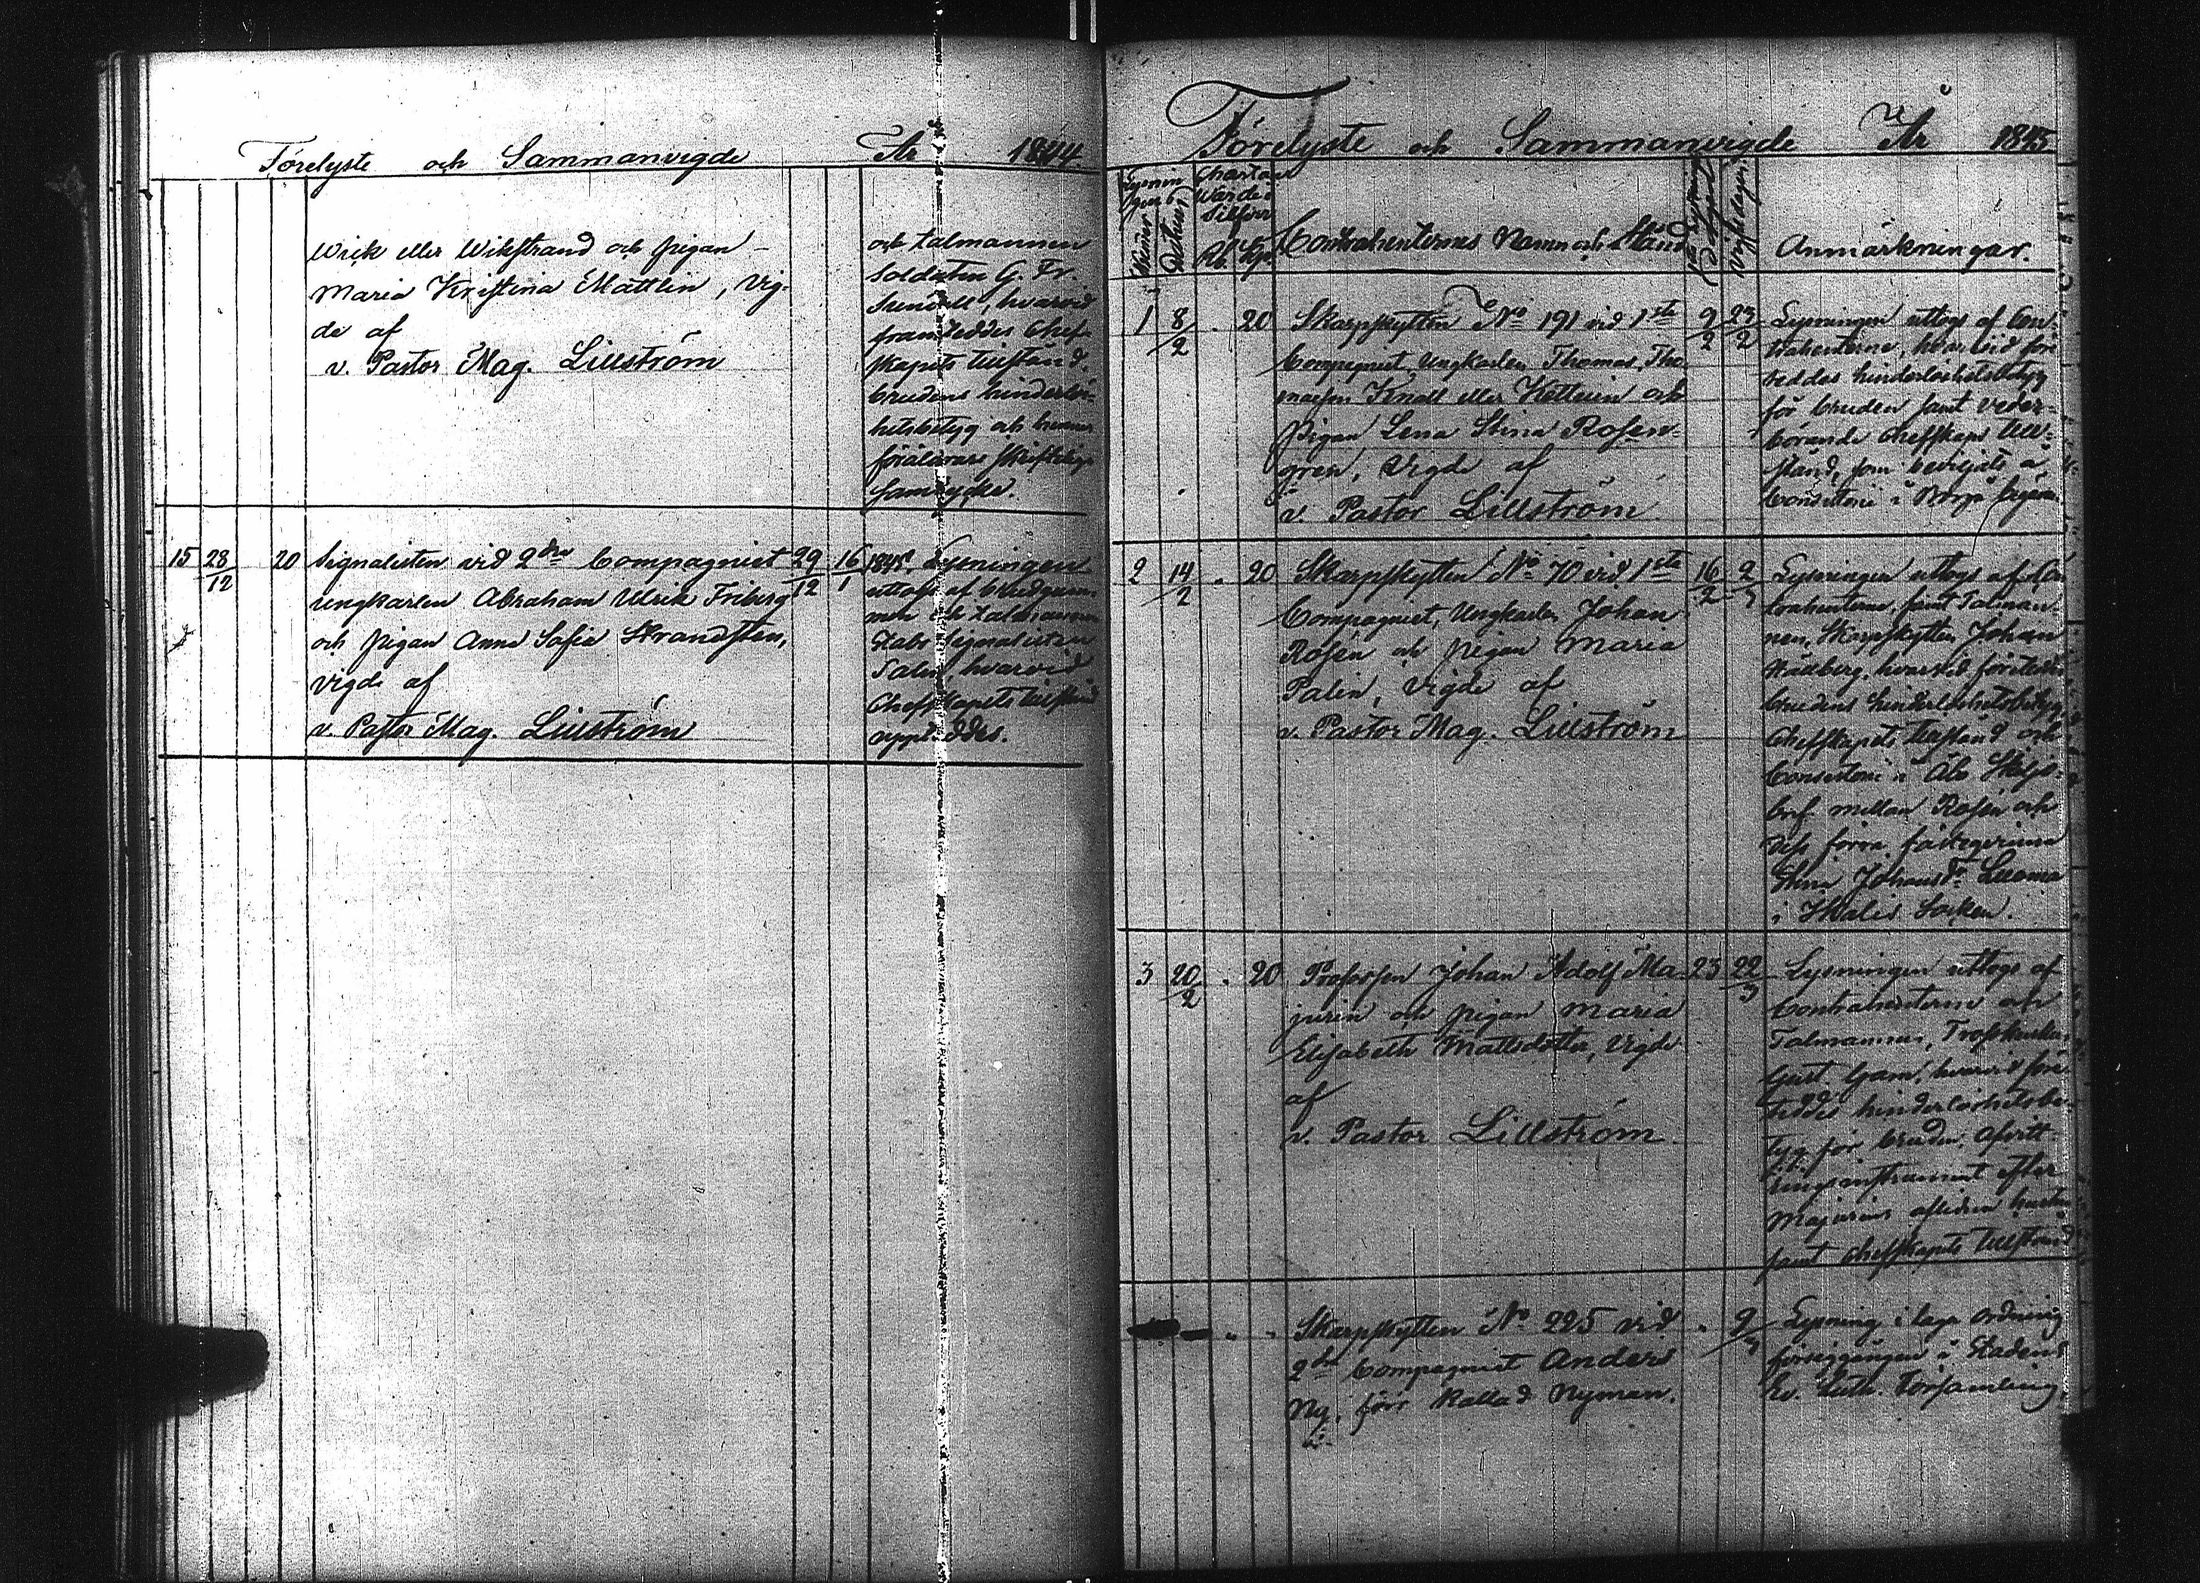 Förelyste och Sammanvigde År 1844
Wiik eller Wikstrand och pigan
Maria Kristina Mattlin, vig-
de af
v. Pastor Mag. Lillström
och talmannen
Soldaten G. Fr.
Sundell, hvarvid
framteddes Chef-
skapets tillstånd,
brudens hinderlös-
hetsbetyg och hennes
föräldrars skriftliga
samtycke.
15 28/12 20 Signalisten vid 2dra Compagniet 29/12 16/1
ungkarlen Abraham Ulrik Friberg
och pigan Anna Sofia Strandsten,
vigde af
v. Pastor Mag. Lillström
1845. Lysningen
uttogs af brudgum-
men och talmannen
Stabs signalisten
Palin, hvarvid
Chefskapets tillstånd
uppteddes.
Förelyste och Sammanvigde År 1845
Lysnin-
gens
Numer
Datum
Charta
Värde
Silfver
Rb. Kp.
Contrahenternes Namn och Stånd
1sta Lysnings
Dagen
Vigseldagen
Anmärkningar.
1 8/2 . 20 Skarpskytten No 191 vid 1sta 9/2 23/2
Compagniet, Ungkarlen Thomas Tho-
masson Knall eller Kettunen och
pigan Lena Stina Rosen-
gren, Vigde af
v. Pastor Lillström
Lysningen uttogs af Con-
trahenterne, hvarvid före-
teddes hinderlöshetsbetyg
för bruden samt veder-
börande Chefskaps till-
stånd, som beviljats a
Consistorii i Borgå vägnar.
2 14/2 . 20 Skarpskytten No 70 vid 1sta 16/2 2/3
Compagniet, Ungkarlen Johan
Rosén och pigan Maria
Palin, Vigde af
v. Pastor Mag. Lillström
Lysningen uttogs af Con-
trahenterne samt Talman-
nen, Skarpskytten Johan
Hällberg, hvarvid företeddes
brudens hinderlöshetsbetyg,
Chefskapets tillstånd och
Consistorii i Åbo Skiljo-
bref mellan Rosén och
dess förra fästeqvinna
Stina Johansdr Luoma
i Ikalis Socken.
3 20/2 . 20 Profossen Johan Adolf Ma- 23 22/3
jurin och pigan Maria
Elisabeth Mattsdotter, Vigde
af
v. Pastor Lillström
Lysningen uttogs af
Contrahenterne och
Talmannen, Trosskusken
Gust. Gam, hvarvid före-
teddes hinderlöshetsbe-
tyg för bruden, afvitt-
ringsinstrument efter
Majurins aflidna hustru
samt Chefskapets tillstånd
. . Skarpskytten No 225 vid . 9/3
2dra Compagniet Anders
Ny, förr kallad Nyman.
Lysning i laga ordning
försiggången i Stadens
Ev. Luth. Församling